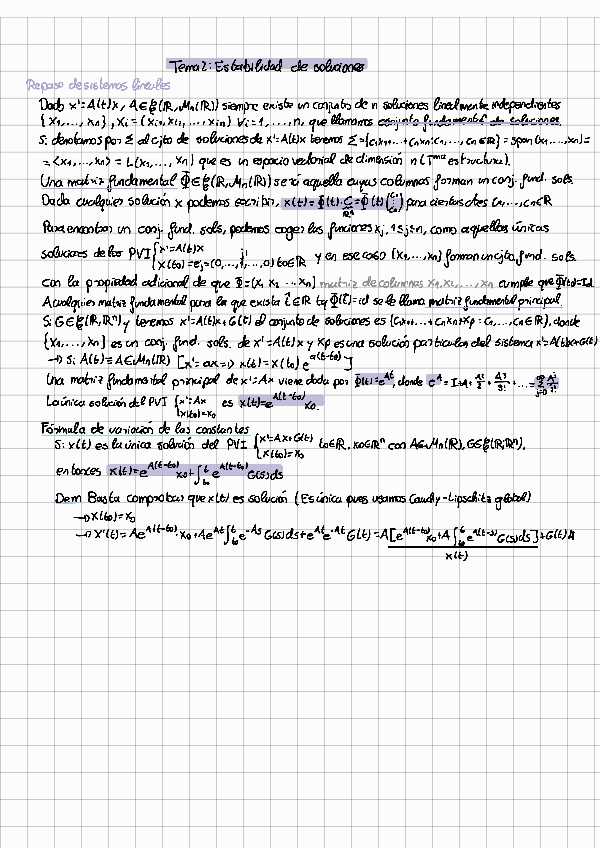 Tema 2: Estabilidad de soluciones
Repaso de sistemas lineales
Dado x'=A(t)x, A∈C(R, Mn(R)) siempre existe un conjunto de n soluciones linealmente independientes
{x1,..., xn}, xi=(xi1, xi2, ..., xin) ∀i=1,...,n, que llamamos conjunto fundamental de soluciones.
Si denotamos por Σ al cjto de soluciones de x'=A(t)x tenemos Σ={c1x1+...+cnxn: c1,..., cn∈R}=span(x1,...,xn)=
=<x1,...,xn> = L(x1,..., xn) que es un espacio vectorial de dimensión n (Tma estructura).
Una matriz fundamental Φ∈C(R, Mn(R)) será aquella cuyas columnas forman un conj. fund. sols.
Dada cualquier solución x podemos escribir, x(t)=Φ(t)·C=Φ(t)(c1 ⋮ cn) para ciertas ctes c1,...,cn∈R
Para encontrar un conj. fund. sols, podemos coger las funciones xj, 1≤j≤n, como aquellas únicas
soluciones de los PVI {x'=A(t)x x(t0)=ej=(0,...,1,...,0) t0∈R y en ese caso {x1,...,xn} forman un cjto. fund. sols.
con la propiedad adicional de que Φ=(x1 x2 ... xn) matriz de columnas x1, x2, ..., xn cumple que Φ(t0)=Id.
A cualquier matriz fundamental para la que exista t̃∈R tq Φ(t̃)=id se le llama matriz fundamental principal.
Si G∈C(R, Rn) y tenemos x'=A(t)x+G(t) el conjunto de soluciones es {c1x1+...+cnxn+xp: c1,...,cn∈R}, donde
{x1,...,xn} es un conj. fund. sols. de x'=A(t)x y xp es una solución particular del sistema x'=A(t)x+G(t)
→ Si A(t)≡A∈Mn(R) [x'=ax => x(t)=x(t0)e^{a(t-t0)}]
Una matriz fundamental principal de x'=Ax viene dada por Φ(t)=e^{At}, donde e^A=I+A+A²/2+A³/3!+...=∑_{j=0}^∞ A^j/j!
La única solución del PVI {x'=Ax x(t0)=x0 es x(t)=e^{A(t-t0)}x0.
Fórmula de variación de las constantes
Si x(t) es la única solución del PVI {x'=Ax+G(t) x(t0)=x0 t0∈R, x0∈Rn con A∈Mn(R), G∈C(R,Rn),
entonces x(t)=e^{A(t-t0)}x0+∫_{t0}^t e^{A(t-s)}G(s)ds
Dem Basta comprobar que x(t) es solución (Es única pues usamos Cauchy-Lipschitz global)
→ x(t0)=x0
→ x'(t)=Ae^{A(t-t0)}·x0+Ae^{At}∫_{t0}^t e^{-As}G(s)ds+e^{At}e^{-At}G(t)=A[e^{A(t-t0)}x0+A∫_{t0}^t e^{A(t-s)}G(s)ds]+G(t)
x(t)